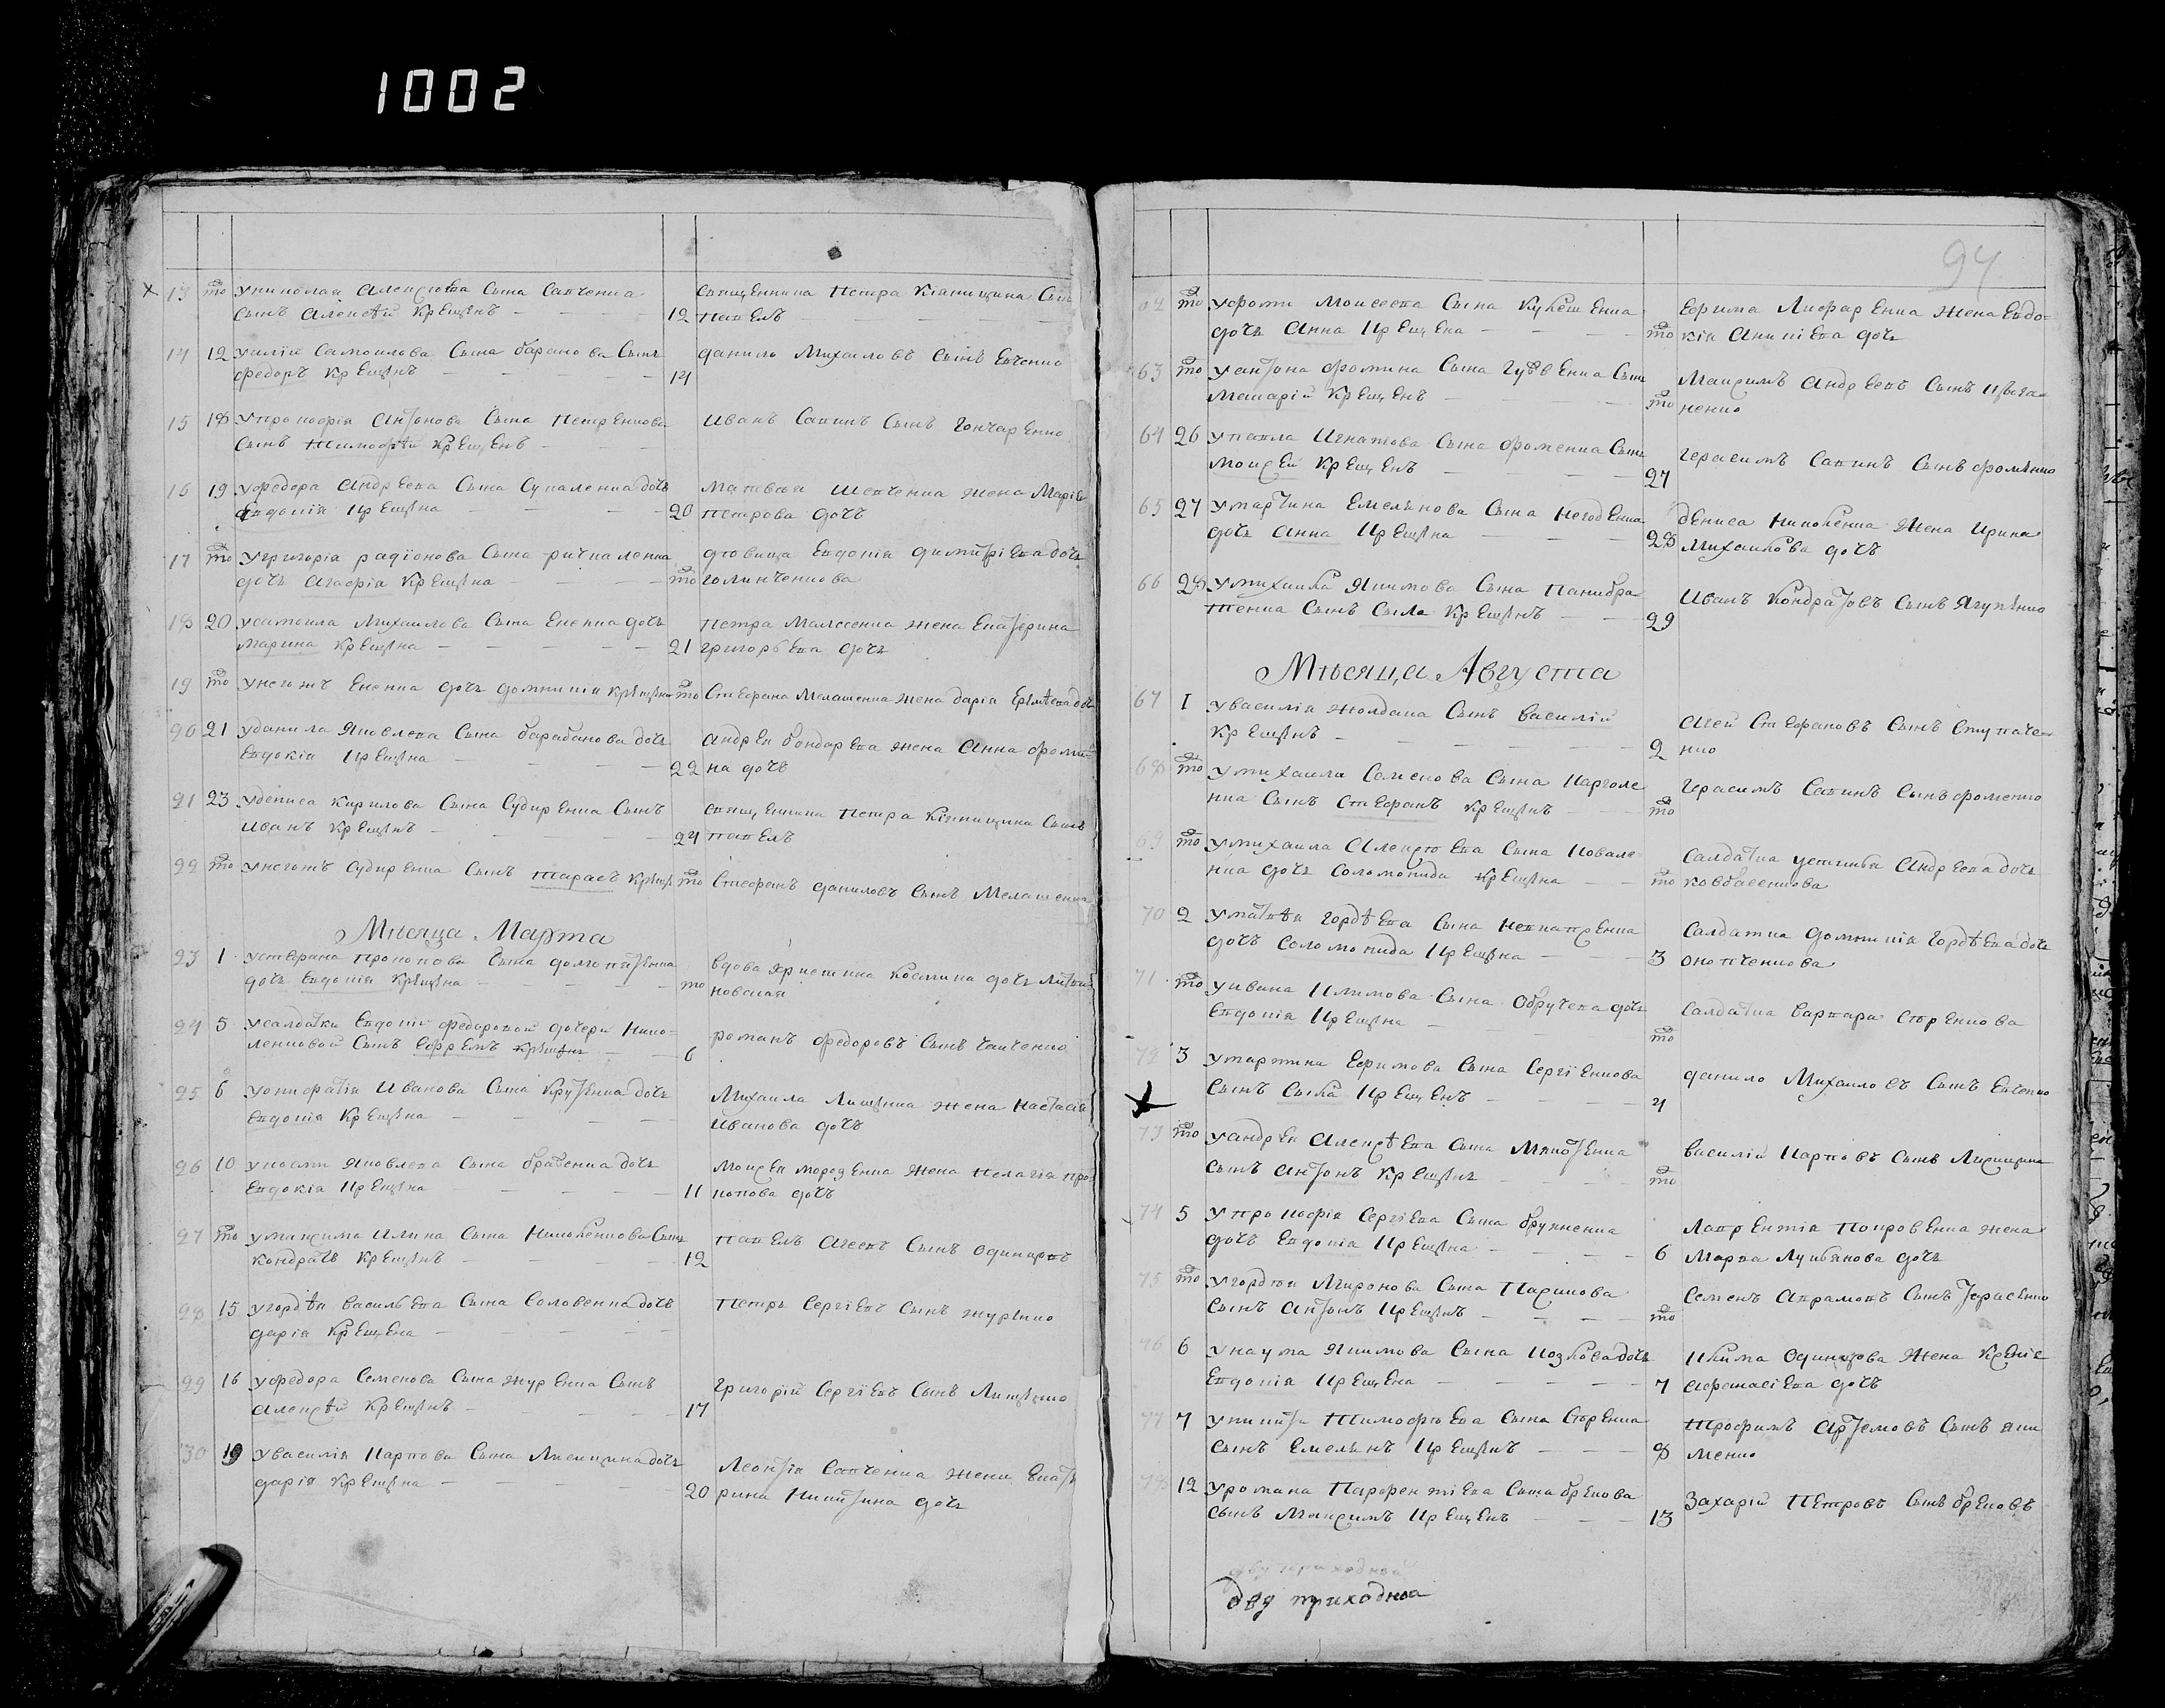 1002
94
13 то У николая Алексѣева Сына Савченка
Сынъ Алексѣй Крещенъ
12
Священника Петра Кіяницина Сынъ
Павелъ
14 12 У иліи Самоилова Сына баранова Сынъ
федоръ Крещенъ
14
данило Михаиловъ Сынъ Евченко
15 18 У прокофія Антонова Сына Петренкова
Сынъ Тимофѣй Крещенъ
Иванъ Савинъ Сынъ Гончаренко
16 19 У федора Андреева Сына Сукаленка дочь
Евдокія Крещена
20
Матвея Шевченка жена Марія
Петрова дочь
17 то У григорія радіонова Сына ричкаленка
дочь Агафія Крещена
то
вдовица Евдокія димитріева дочь
голинченкова
18 20 У самоила Михаилова Сына Ененка дочь
Марина Крещена
21
Петра Малеенка жена Екатерина
григорьева дочь
19 то У негожъ Ененка дочь домникія Крещена
то
Стефана Мелашенка жена дарія Еремѣева дочь
20 21 У данила Яковлева Сына барабанова дочь
Евдокія Крещена
22
Андрея бондарева жена Анна фоми-
на дочь
21 23 У дениса Кирилова Сына Судиренка Сынъ
Иванъ Крещенъ
24
Священника Петра Кіяницина Сынъ
Павелъ
22 то У негожъ Судиренка Сынъ Тарасъ Крещенъ
то
Стефанъ даниловъ Сынъ Мелашенко
Мѣсяца Марта
23 1 У стефана Прокопова Сына долгопятенка
дочь Евдокія Крещена
то
Вдова Христина Космина дочь
новская
24 5 У солдатки Евдокіи федоровой дочери Нико-
ленковой Сынъ Ефремъ Крещенъ
6
романъ федоровъ Сынъ Чайченко
25 6 У онифатія Иванова Сына Крутенка дочь
Евдокія Крещена
Михаила Лищенка жена Настасія
Иванова дочь
26 10 Яковлева Сына дочь
Евдокія Крещена
11
Моисея морозенка жена Пелагія про-
копова дочь
27 то У максима Илина Сына Николенкова Сынъ
Кондратъ Крещенъ
12
Павелъ Агеевъ Сынъ Одинцовъ
28 15 У гордѣя Васильева Сына Соловенка дочь
дарія Крещена
Петръ Сергіевъ Сынъ журенко
29 16 У федора Семенова Сына журенка Сынъ
Алексѣй Крещенъ
17
Григорій Сергіевъ Сынъ Лищенко
30 19 У василія Карпова Сына Лисицина дочь
дарія Крещена
20
Леонтія Савченка жена Екате
рина Никитина дочь
62 то У фомы Моисеева Сына Кулешенка
дочь Анна Крещена
то
Ефима Лифаренка жена Евдо-
кія Ананіева дочь
63 то У антона фомина Сына Сынъ
Макарій Крещенъ
то
Максимъ Андреевъ Сынъ Цыга-
ненко
64 26 У павла Игнатова Сына фоменка Сынъ
Моисей Крещенъ
27
Герасимъ Савинъ Сынъ фоменко
65 27 У мартина Емельянова Сына Негоденка
дочь Анна Крещена
28
дениса Николенка жена Ирина
Михаилова дочь
66 28 У михаила Якимова Сына Панибра-
тенка Сынъ Сыла Крещенъ
29
Иванъ Кондратовъ Сынъ Ягупенко
Мѣсяца Августа
67 1 У василія жолдака Сынъ Василій
Крещенъ
2
Агей Стефановъ Сынъ Ступаче-
нко
68 то У михаила Семенова Сына Карголе
нка Сынъ Стефанъ Крещенъ
то
Герасимъ Савинъ Сынъ фоменко
69 то У михаила Алексѣева Сына Ковале-
нка дочь Соломонида Крещена
то
Салдатка устинья Андреева дочь
Ковбасенкова
70 2 У матвѣя гордѣева Сына
дочь Соломонида Крещена
3
Салдатка домникія Гордѣева дочь
71 то У ивана Климова Сына Обручева дочь
Евдокія Крещена
то
Салдатка варвара
72 3 У мартина Ефимова Сына Сергіенкова
Сынъ Сыла Крещенъ
4
данило Михаиловъ Сынъ Евсенко
73 то У андрея Алексѣева Сына Мякотенка
Сынъ Антонъ Крещенъ
то
василій Карповъ Сынъ Лисицинъ
74 5 У прокофія Сергіева Сына
дочь Евдокія Крещена
6
Лаврентія Покровенка жена
Марфа Лукьянова дочь
75 то У гордѣя Миронова Сына Пасикова
Сынъ Антонъ Крещенъ
то
Семенъ Аврамовъ Сынъ Тарасенко
76 6 У наума Якимова Сына Козлова дочь
Евдокія Крещена
7
Клима Одинцова жена Ксенія
Афанасіева дочь
77 7 У никиты Тимофѣева Сына
Сынъ Емельянъ Крещенъ
8
Трофимъ Артемовъ Сынъ Яки
менко
78 12 У романа Парфентіева Сына брехова
Сынъ Максимъ Крещенъ
13
Захарій Петровъ Сынъ бреховъ
дву приходной
дву приходная